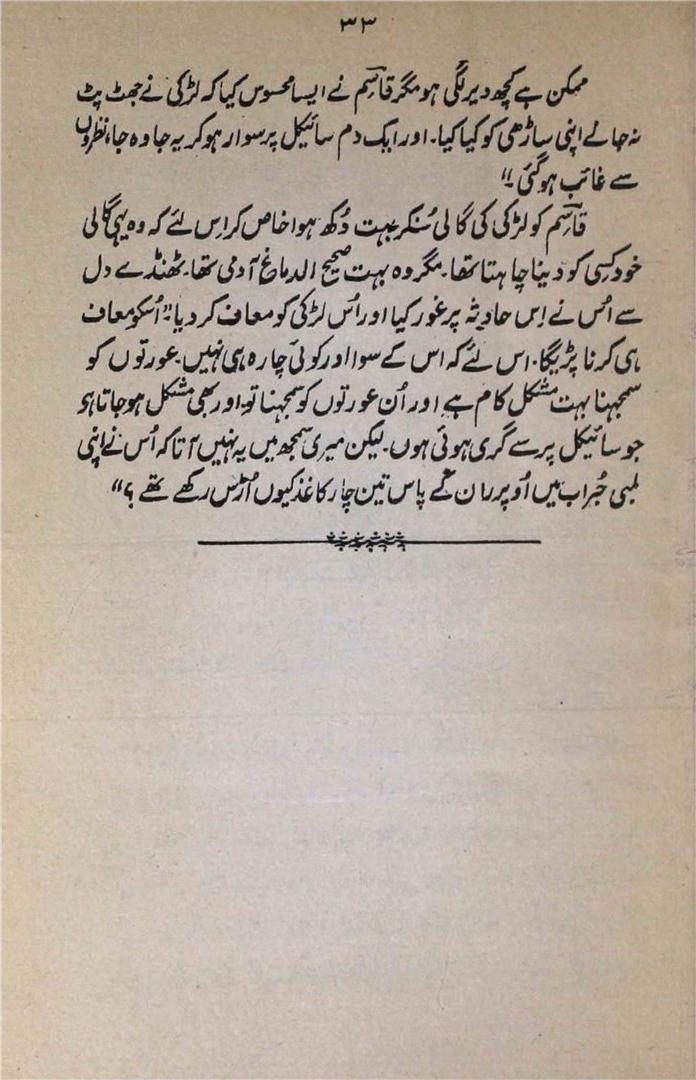 ۳۳
ممکن ہے کچھ دیر لگی ہو مگر قاسم نے ایسا محسوس کیا کہ لڑکی نے جھٹ پٹ
نہ جانے اپنی ساڑھی کو کیا کیا۔ اور ایک دم سائیکل پر سوار ہو کر یہ جا وہ جا، نظروں
سے غائب ہو گئی۔"
قاسم کو لڑکی کی گالی سُنکر بہت دُکھ ہوا خاص کر اِس لئے کہ وہ یہی گالی
خود کسی کو دینا چاہتا تھا۔ مگر وہ بہت صحیح الدماغ آدمی تھا۔ ٹھنڈے دل
سے اُس نے اِس حادثہ پر غور کیا اور اُس لڑکی کو معاف کر دیا۔" اُسکو معاف
ہی کرنا پڑیگا۔ اس لئے کہ اس کے سوا اور کوئی چارہ ہی نہیں۔ عورتوں کو
سمجہنا بہت مشکل کام ہے اور اُن عورتوں کو سمجہنا تو اور بھی مشکل ہو جاتا ہو
جو سائیکل پر سے گری ہوئی ہوں۔ لیکن میری سمجھ میں یہ نہیں آتا کہ اُس نے اپنی
لمبی جُراب میں اُوپر ران کے پاس تین چار کاغذ کیوں اُڑس رکھے تھے؟"